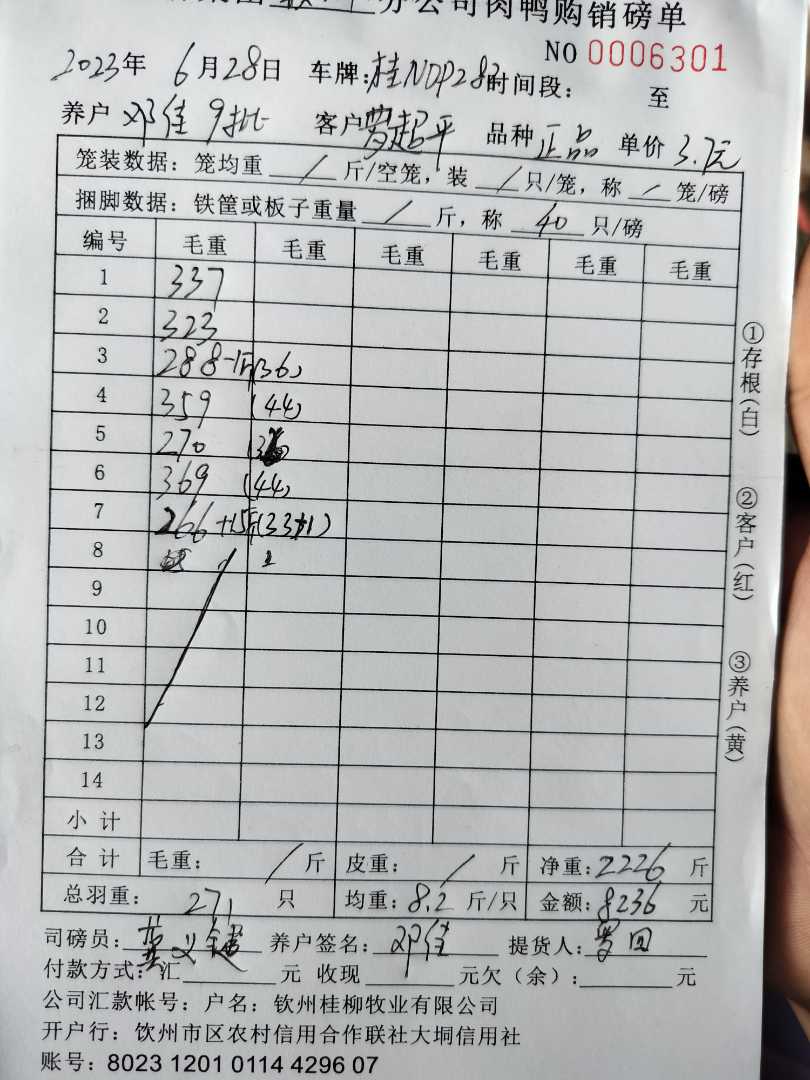 分公司肉鸭购销磅单
NO 0006301
2023年 6月28日 车牌:桂NDP282 时间段: 至
养户 邓佳 9批 客户 罗超平 品种 正品 单价 3.7元
笼装数据:笼均重 / 斤/空笼,装 / 只/笼,称 / 笼/磅
捆脚数据:铁筐或板子重量 / 斤,称 40 只/磅
编号 毛重 毛重 毛重 毛重 毛重 毛重
1 337
2 323
3 288-1斤(36)
4 359 (44)
5 270
6 369 (44)
7 266+15斤(33+1)
8
9
10
11
12
13
14
小计
合计 毛重: / 斤 皮重: / 斤 净重:2226 斤
总羽重: 271 只 均重:8.2 斤/只 金额:8236 元
司磅员: 黄 养户签名: 邓佳 提货人: 罗
付款方式:汇 元 收现 元欠(余): 元
公司汇款帐号:户名:钦州桂柳牧业有限公司
开户行:饮州市区农村信用合作联社大垌信用社
账号:8023 1201 0114 4296 07
①存根(白)
②客户(红)
③养户(黄)